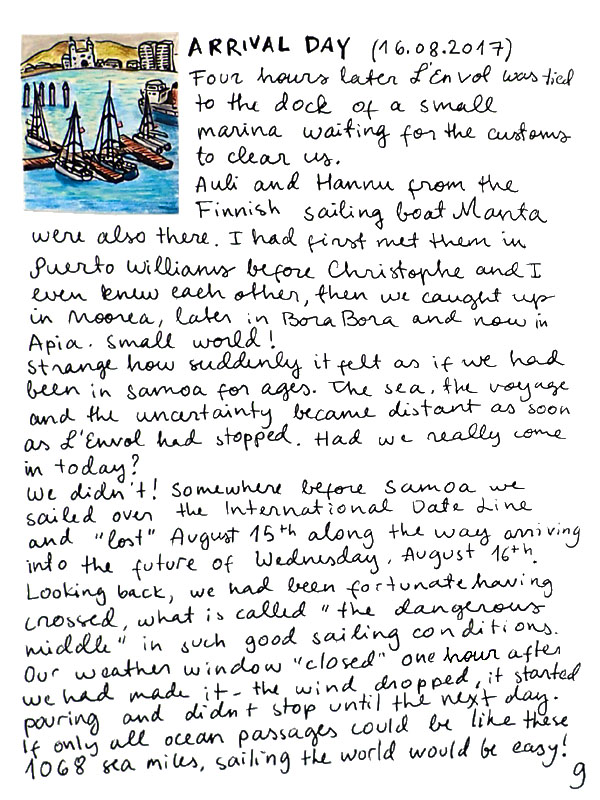 ARRIVAL DAY (16.08.2017)
Four hours later L'Envol was tied
to the dock of a small
marina waiting for the customs
to clear us.
Auli and Hannu from the
Finnish sailing boat Manta
were also there. I had first met them in
Puerto Williams before Christophe and I
even knew each other, then we caught up
in Moorea, later in Bora Bora and now in
Apia. Small world!
Strange how suddenly it felt as if we had
been in Samoa for ages. The sea, the voyage
and the uncertainty became distant as soon
as L'Envol had stopped. Had we really come
in today?
We didn't! Somewhere before Samoa we
sailed over the International Date Line
and "lost" August 15th along the way arriving
into the future of Wednesday, August 16th.
Looking back, we had been fortunate having
crossed, what is called "the dangerous
middle" in such good sailing conditions.
Our weather window "closed" one hour after
we had made it - the wind dropped, it started
pouring and didn't stop until the next day.
If only all ocean passages could be like these
1068 sea miles, sailing the world would be easy!
9